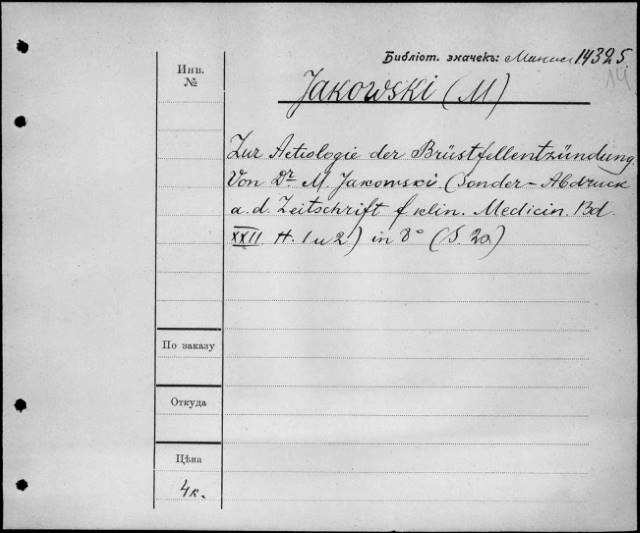 Библіот. значекъ: 14325.
14
Инв.
№
Jakowski (M)
Zur Aetiologie der Brüstfellentzündung.
Von Dr. M. Jakowski. (Sonder-Abdruck
a. d. Zeitschrift f. klin. Medicin. Bd.
XXII. H. 1 u 2) in 8° (S. 20)
По заказу
Откуда
Цѣна
4к.